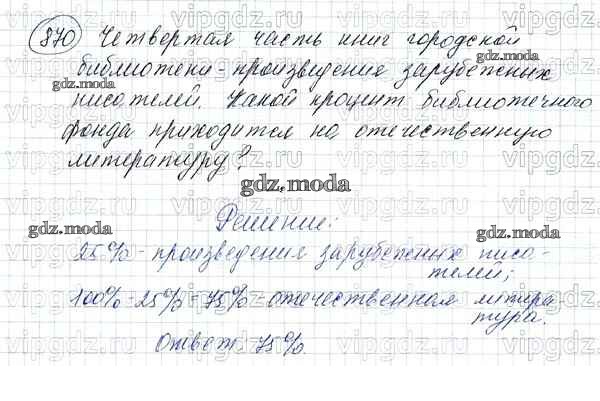 870 Четвертая часть книг городской
библиотеки - произведения зарубежных
писателей. Какой процент библиотечного
фонда приходится на отечественную
литературу?
gdz.moda
Решение:
25% - произведения зарубежных писа-
телей;
100% - 25% = 75% - отечественная литера-
тура.
Ответ: 75%.